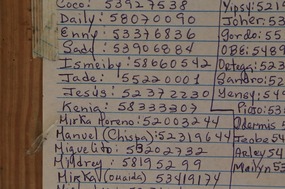 Coco: 53927538
Daily: 58070090
Enny: 53376836
Sady: 53906884
Ismeiby: 58660542
Jade: 55220001
Jesús: 52372230
Kenia: 58333307
Mirka Moreno: 52003244
Manuel (Chispa): 52219644
Miguelito: 53202732
Mildrey: 58195299
Mirka (Omaida) 53419174
Yipsy: 52
Joher: 53
Gordo: 55
OBE: 5489
Ortega: 523
Sandro: 52
Yensy: 549
Pipo: 53
Odennis
Teobe 54
Arley 54
Mailyn 53